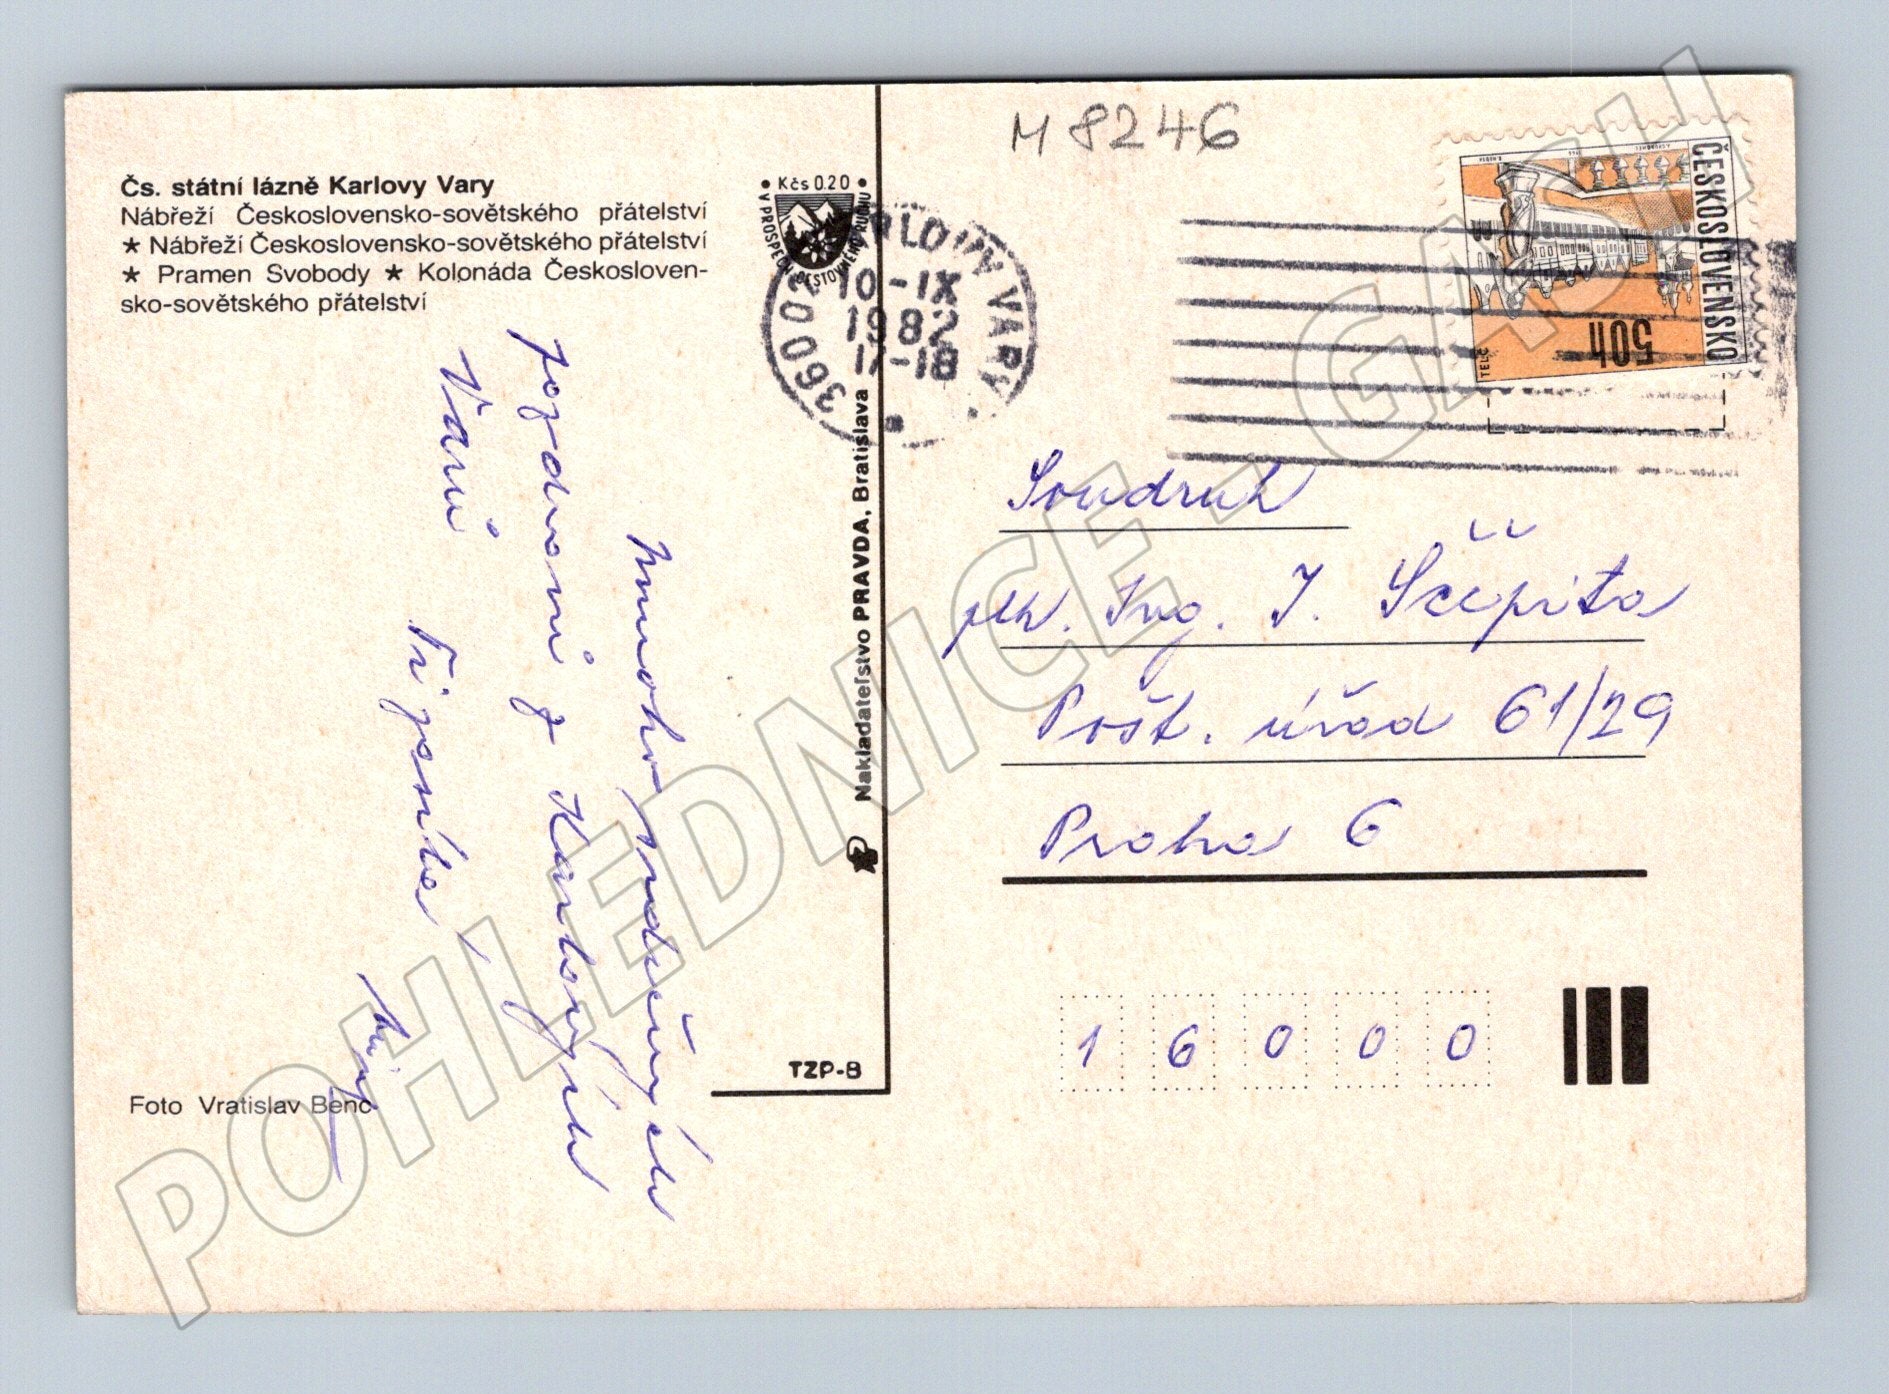 Čs. státní lázně Karlovy Vary
Nábřeží Československo-sovětského přátelství
★ Nábřeží Československo-sovětského přátelství
★ Pramen Svobody ★ Kolonáda Českosloven-
sko-sovětského přátelství
mnoho srdečných
pozdravů z Karlových
Varů
Foto Vratislav Benc
• Kčs 0.20 •
V PROSPĚCH CESTOVNÉHO RUCHU
360 02 KARLOVY VARY
10-IX
1982
-18
Nakladateľstvo PRAVDA, Bratislava
TZP-8
M 8246
ČESKOSLOVENSKO
50h
TELČ
Soudruh
plk. Ing. J. Ščěpita
Pošt. úřad 61/29
Praha 6
16000
POHLEDNICE - GASH